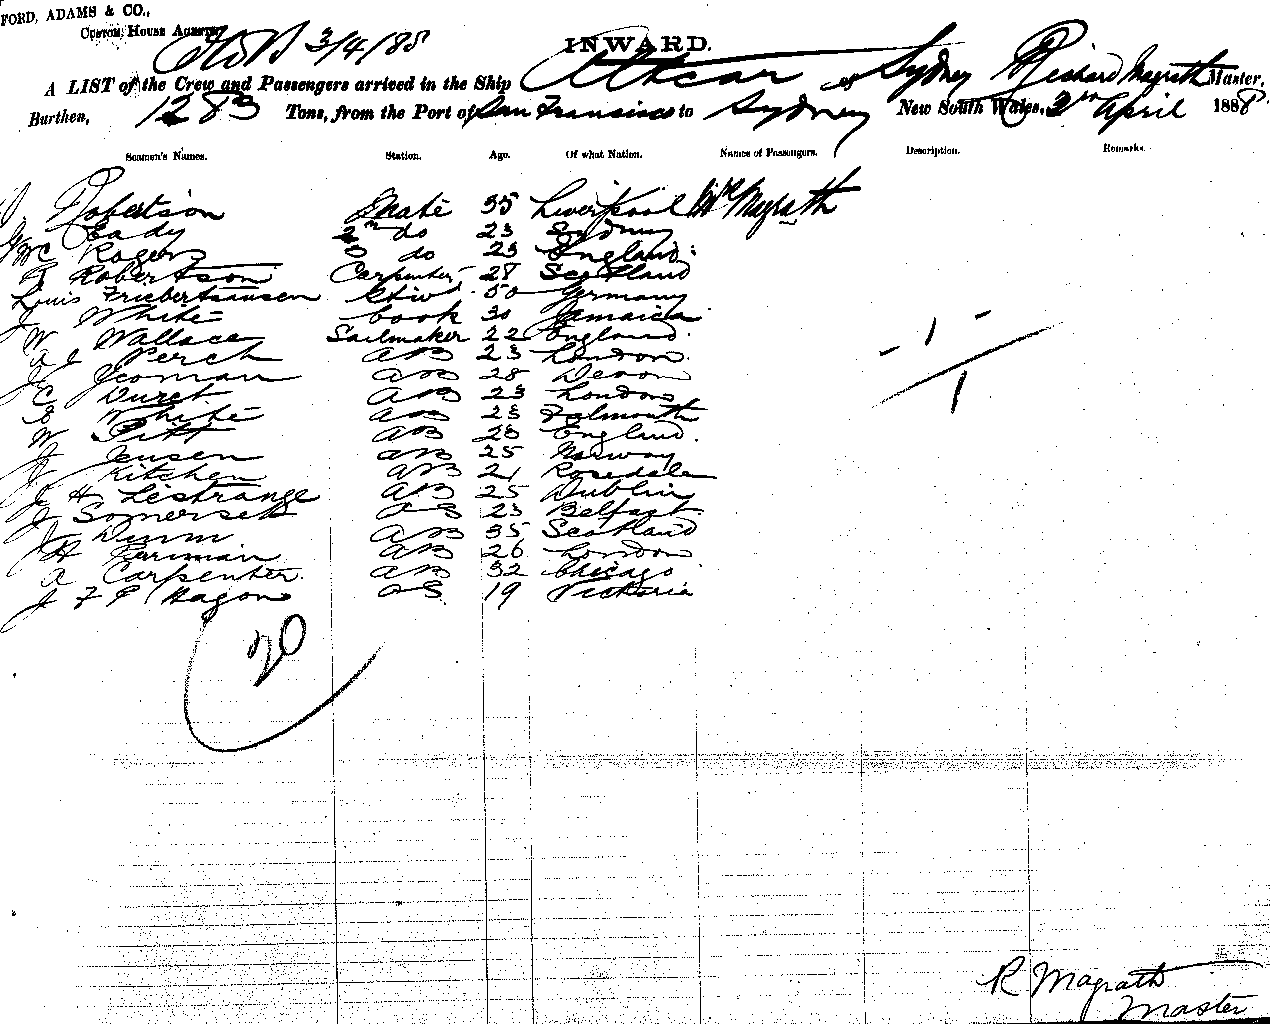 FORD, ADAMS & CO.,
Custom House Agents
3/4/88
INWARD.
A LIST of the Crew and Passengers arrived in the Ship Altcar of Sydney Richard Magrath Master,
Burthen, 1283 Tons, from the Port of San Francisco to Sydney New South Wales, April 1888
Seamen's Names. Station. Age. Of what Nation. Names of Passengers. Description. Remarks.
Robertson Mate 35 Liverpool Mrs Magrath
Eady 2nd do 23 Sydney
McRogers 3 do 23 England
Robertson Carpenter 28 Scotland
Louis Friebertshausen Stwd 50 Germany
J White Cook 30 Jamaica
W Wallace Sailmaker 22 England
A E Perch AB 23 London
J Yeoman AB 28 Devon
C Duret AB 23 London
White AB 23 Falmouth
W Pitt AB 23 England
J Jensen AB 25 Norway
J Kitchen AB 21 Rosedale
J H Lestrange AB 25 Dublin
J Somerset OS 23 Belfast
J Dunn AB 35 Scotland
H Perriman AB 26 London
A Carpenter AB 32 Chicago
J F P Hagon OS 19 Victoria
20
1
1
R Magrath
Master